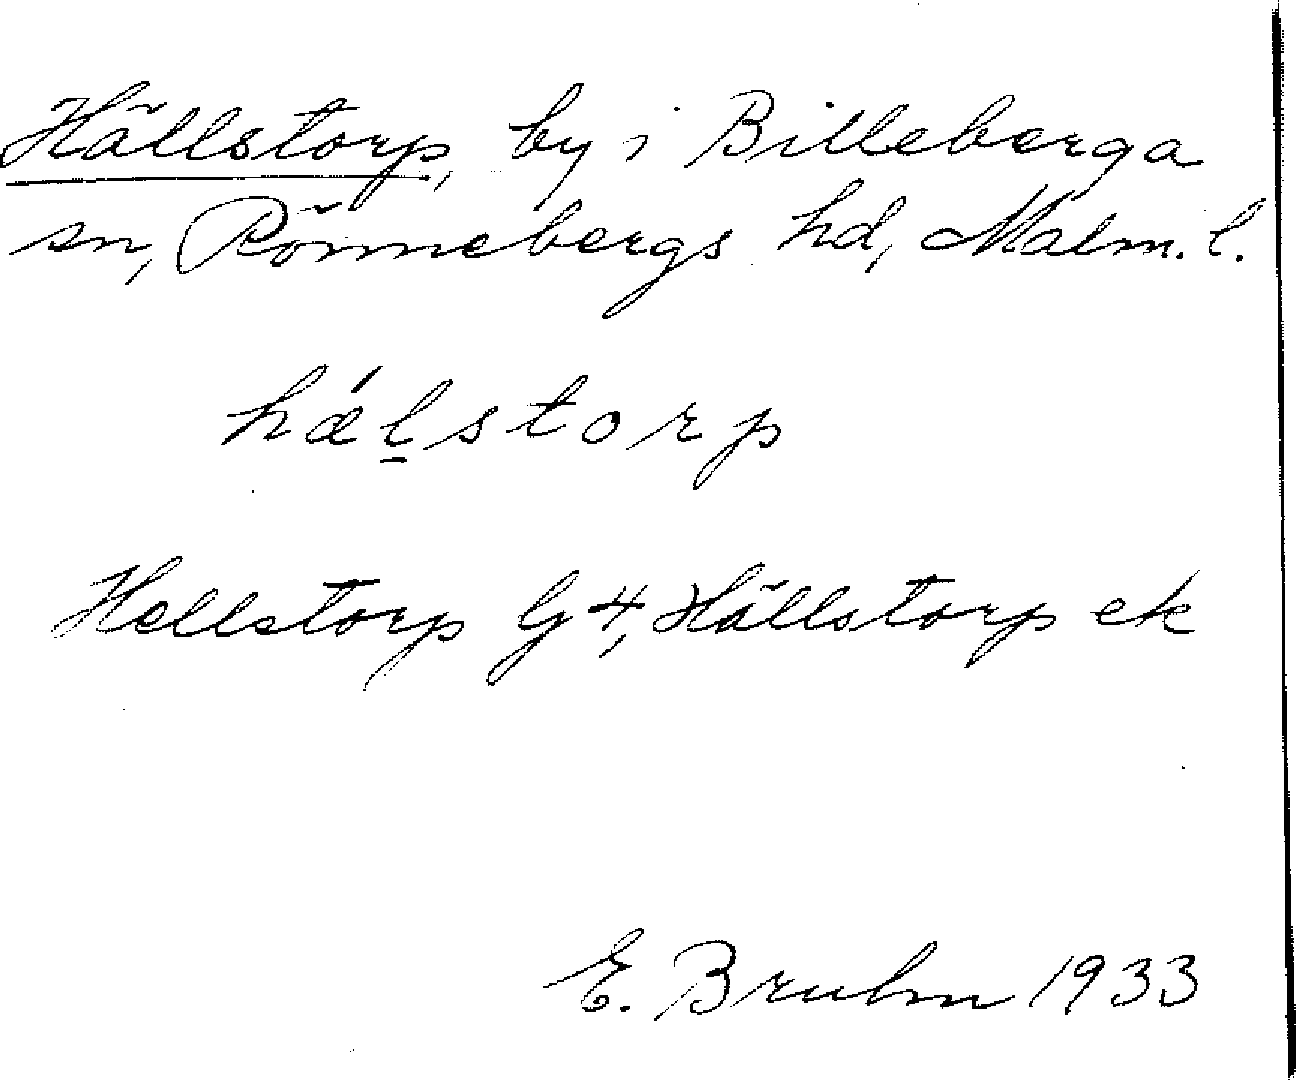 Hällstorp, by i Billeberga
sn, Rönnebergs hd, Malm. l.
hǽl̲storp
Hellstorp G 4, Hällstorp ek
E. Bruhn 1933